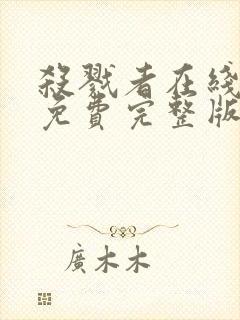 殺戮者在綫
免費完整版
廣木木